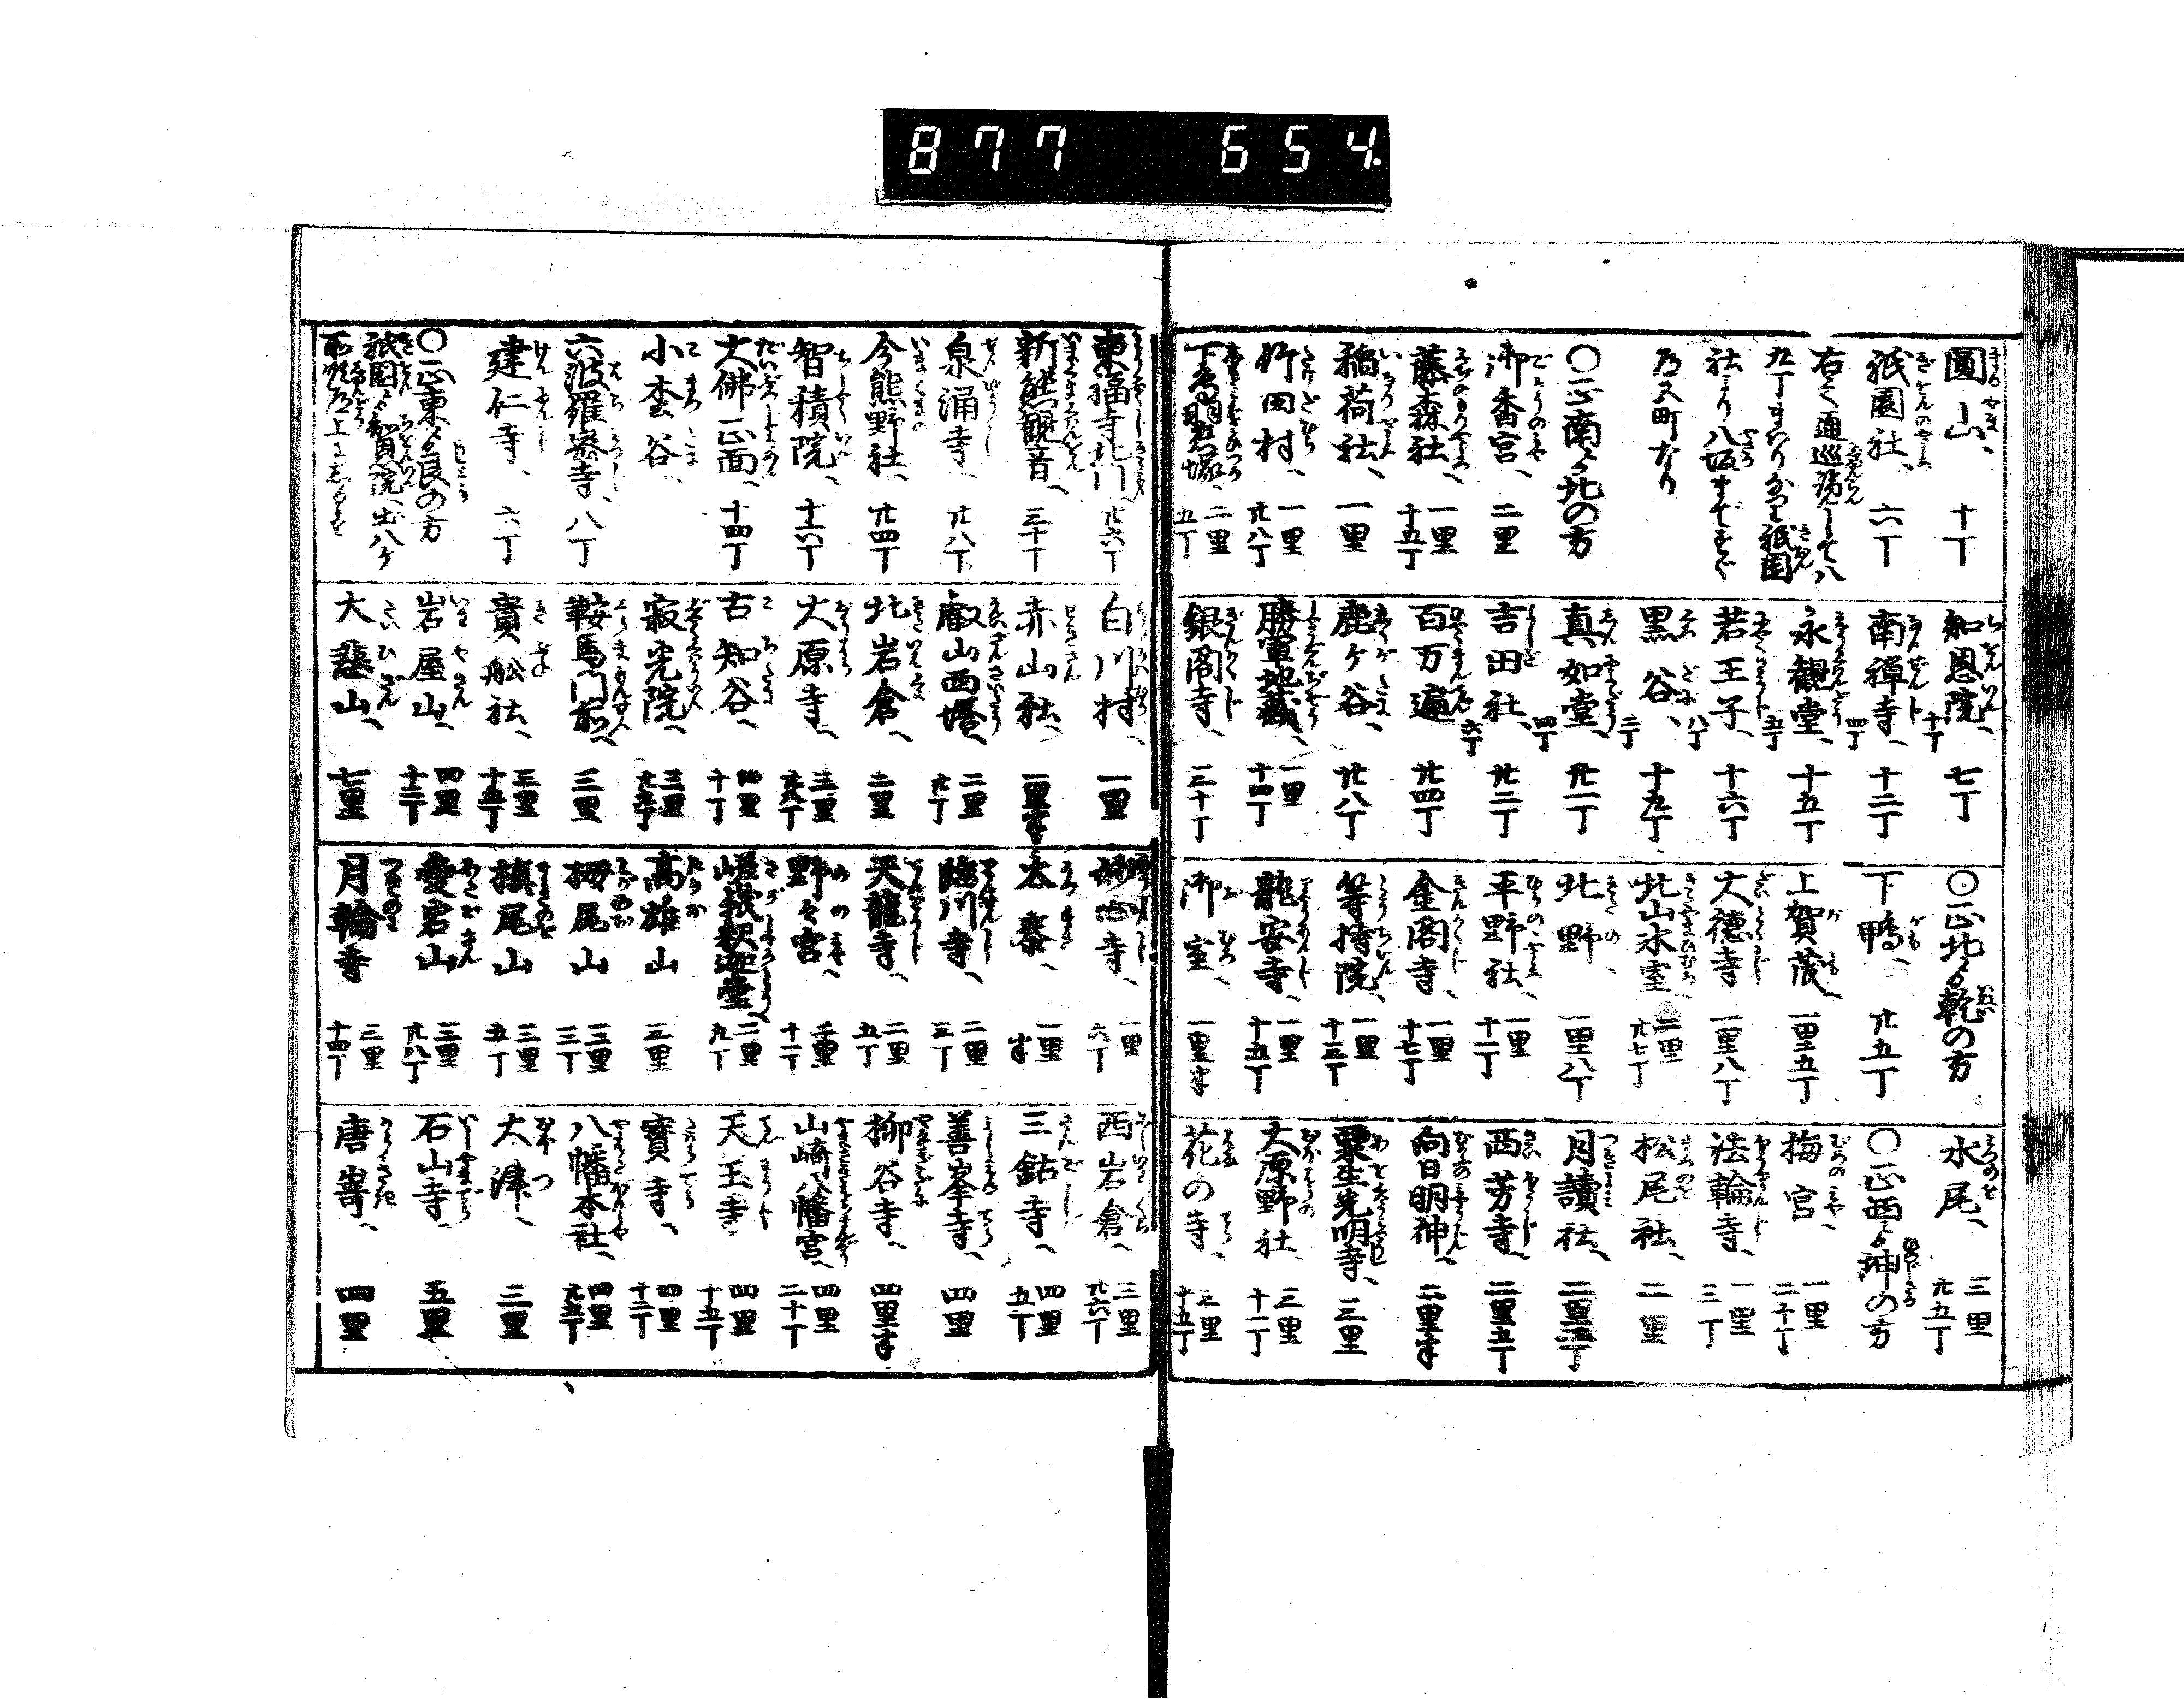 877 654.
圓山、 十丁
祇園社、 六丁
社より八坂まですぐ
〇正南より北の方
御香宮、 二里
藤森社、 一里十五丁
稲荷社、 一里
竹田村、 一里廿八丁
下鳥羽恋塚、 二里五丁
知恩院、 七丁
十丁
南禅寺、 十二丁
四丁
永観堂、 十五丁
五丁
若王子、 十六丁
八丁
黒谷、 十九丁
三丁
真如堂、 廿一丁
四丁
吉田社、 廿二丁
六丁
百万遍 廿四丁
鹿ヶ谷、 廿八丁
勝軍地蔵、 一里十四丁
銀閣寺、 三十丁
〇正北より乾の方
下鴨、 廿五丁
上賀茂、 一里五丁
大徳寺 一里八丁
北山氷室、 二里廿七丁
北野、 一里八丁
平野社、 一里十一丁
金閣寺、 一里十七丁
等持院、 一里十三丁
龍安寺、 一里十五丁
御室、 一里半
水尾、 三里廿五丁
〇正西より坤の方
梅宮、 一里二十丁
法輪寺、 一里三丁
松尾社、 二里
月讀社、 二里三丁
西芳寺、 二里五丁
向日明神、 二里半
粟生光明寺、 三里
大原野社 三里十一丁
花の寺、 三里十五丁
東福寺北門 廿六丁
新熊観音、 三十丁
泉涌寺、 廿八丁
今熊野社、 廿四丁
智積院、 十六丁
大佛正面、 十四丁
小松谷、
六波羅密寺、 八丁
建仁寺、 六丁
〇正東より艮の方
白川村、 一里
赤山社、 一里半
叡山西塔、 二里九丁
北岩倉、 二里
大原寺、 三里廿八丁
古知谷、 四里十丁
寂光院、 三里廿五丁
鞍馬門前、 三里
貴舩社、 三里十五丁
岩屋山、 四里十二丁
大悲山、 七里
妙心寺、 一里六丁
太秦、 一里半
臨川寺、 二里三丁
天龍寺、 二里五丁
野々宮、 二里十一丁
嵯峨釈迦堂、 二里九丁
高雄山 三里
栂尾山 三里三丁
槙尾山 三里五丁
愛宕山 三里廿八丁
月輪寺 三里十四丁
西岩倉、 三里廿六丁
三鈷寺、 四里五丁
善峯寺、 四里
柳谷寺、 四里半
山崎八幡宮、 四里二十丁
天王寺 四里十五丁
寳寺、 四里十二丁
八幡本社、 四里廿五丁
大津、 三里
石山寺、 五里
唐嵜、 四里